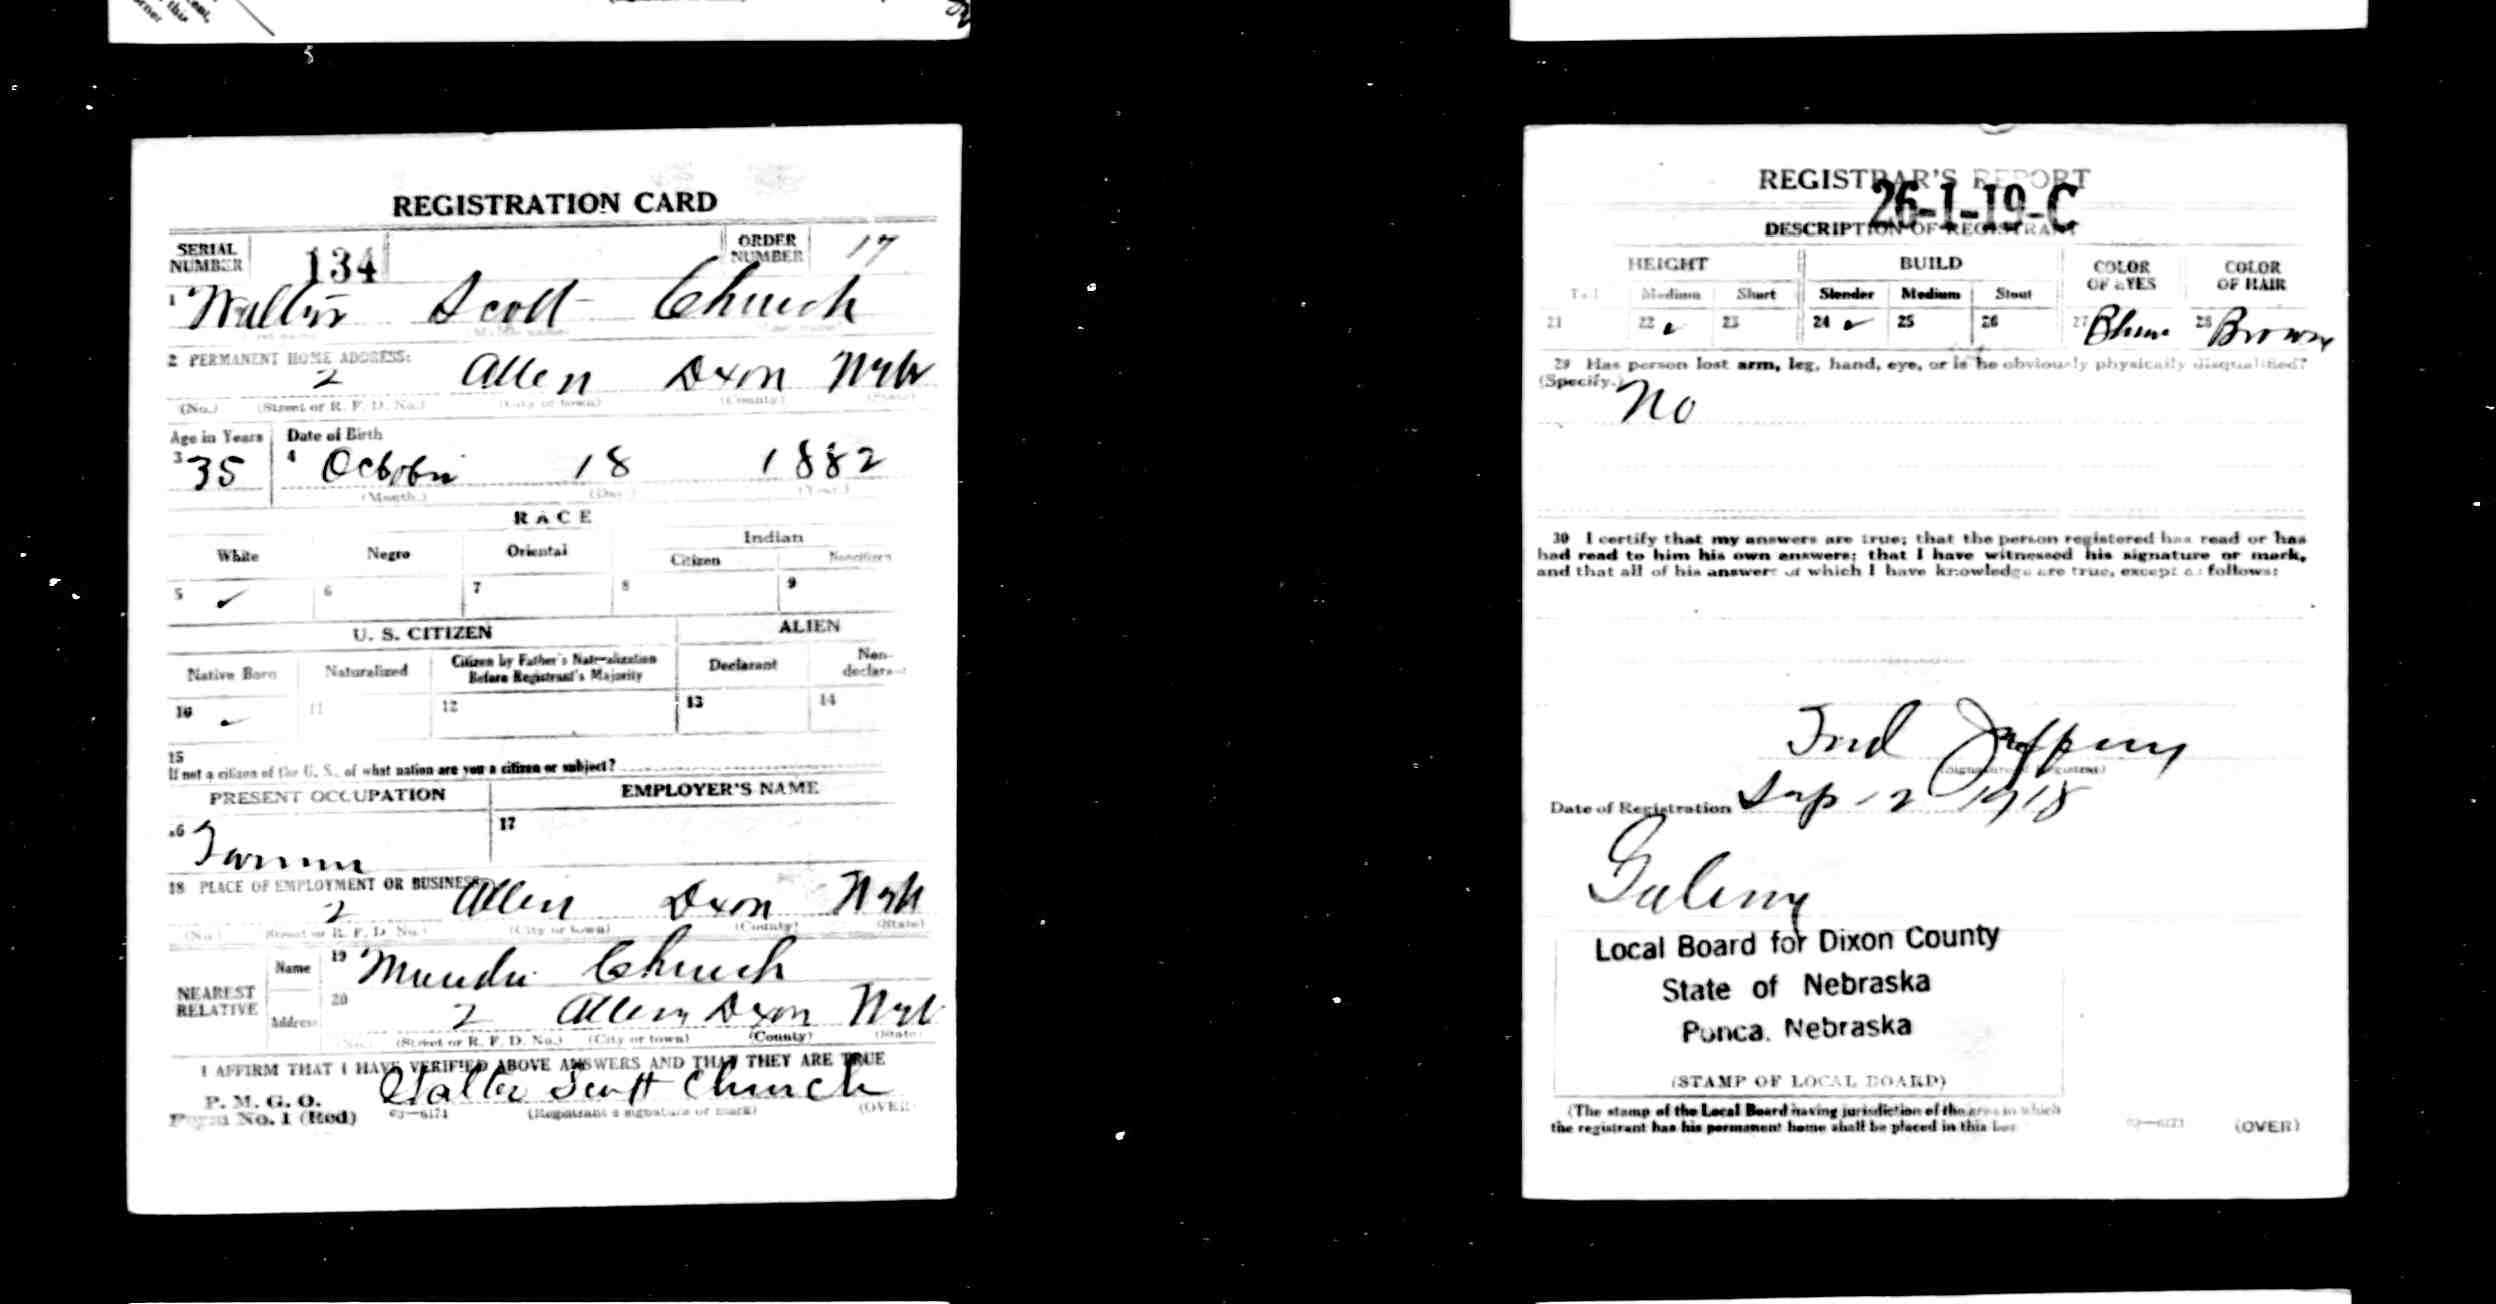 REGISTRATION CARD
SERIAL NUMBER 134 ORDER NUMBER 17
1 Walter Scott Church
2 PERMANENT HOME ADDRESS:
2 Allen Dixon Nebr
(No.) (Street or R. F. D. No.) (City or town) (County) (State)
Age in Years Date of Birth
3 35 4 October 18 1882
(Month.) (Day.) (Year.)
RACE
White Negro Oriental Indian
Citizen Noncitizen
5 ✓ 6 7 8 9
U. S. CITIZEN ALIEN
Native Born Naturalized Citizen by Father's Naturalization Before Registrant's Majority Declarant Non-declarant
10 ✓ 11 12 13 14
15
If not a citizen of the U. S., of what nation are you a citizen or subject?
PRESENT OCCUPATION EMPLOYER'S NAME
16 Farmer 17
18 PLACE OF EMPLOYMENT OR BUSINESS:
2 Allen Dixon Nebr
(No.) (Street or R. F. D. No.) (City or town) (County) (State)
NEAREST RELATIVE Name 19 Church
Address 20 2 Allen Dixon Neb
(No.) (Street or R. F. D. No.) (City or town) (County) (State)
I AFFIRM THAT I HAVE VERIFIED ABOVE ANSWERS AND THAT THEY ARE TRUE
Walter Scott Church
P. M. G. O.
Form No. 1 (Red) 03—6171 (Registrant's signature or mark) (OVER)
REGISTRAR'S REPORT
26-1-19-C
DESCRIPTION OF REGISTRANT
HEIGHT BUILD COLOR OF EYES COLOR OF HAIR
Tall Medium Short Slender Medium Stout
21 22 ✓ 23 24 ✓ 25 26 27 Blue 28 Brown
29 Has person lost arm, leg, hand, eye, or is he obviously physically disqualified?
(Specify.) No
30 I certify that my answers are true; that the person registered has read or has
had read to him his own answers; that I have witnessed his signature or mark,
and that all of his answers of which I have knowledge are true, except as follows:
Fred Jeffrey
(Signature of Registrar)
Date of Registration Sep 12 1918
Local Board for Dixon County
State of Nebraska
Ponca, Nebraska
(STAMP OF LOCAL BOARD)
(The stamp of the Local Board having jurisdiction of the area in which
the registrant has his permanent home shall be placed in this box.
03—6171 (OVER)